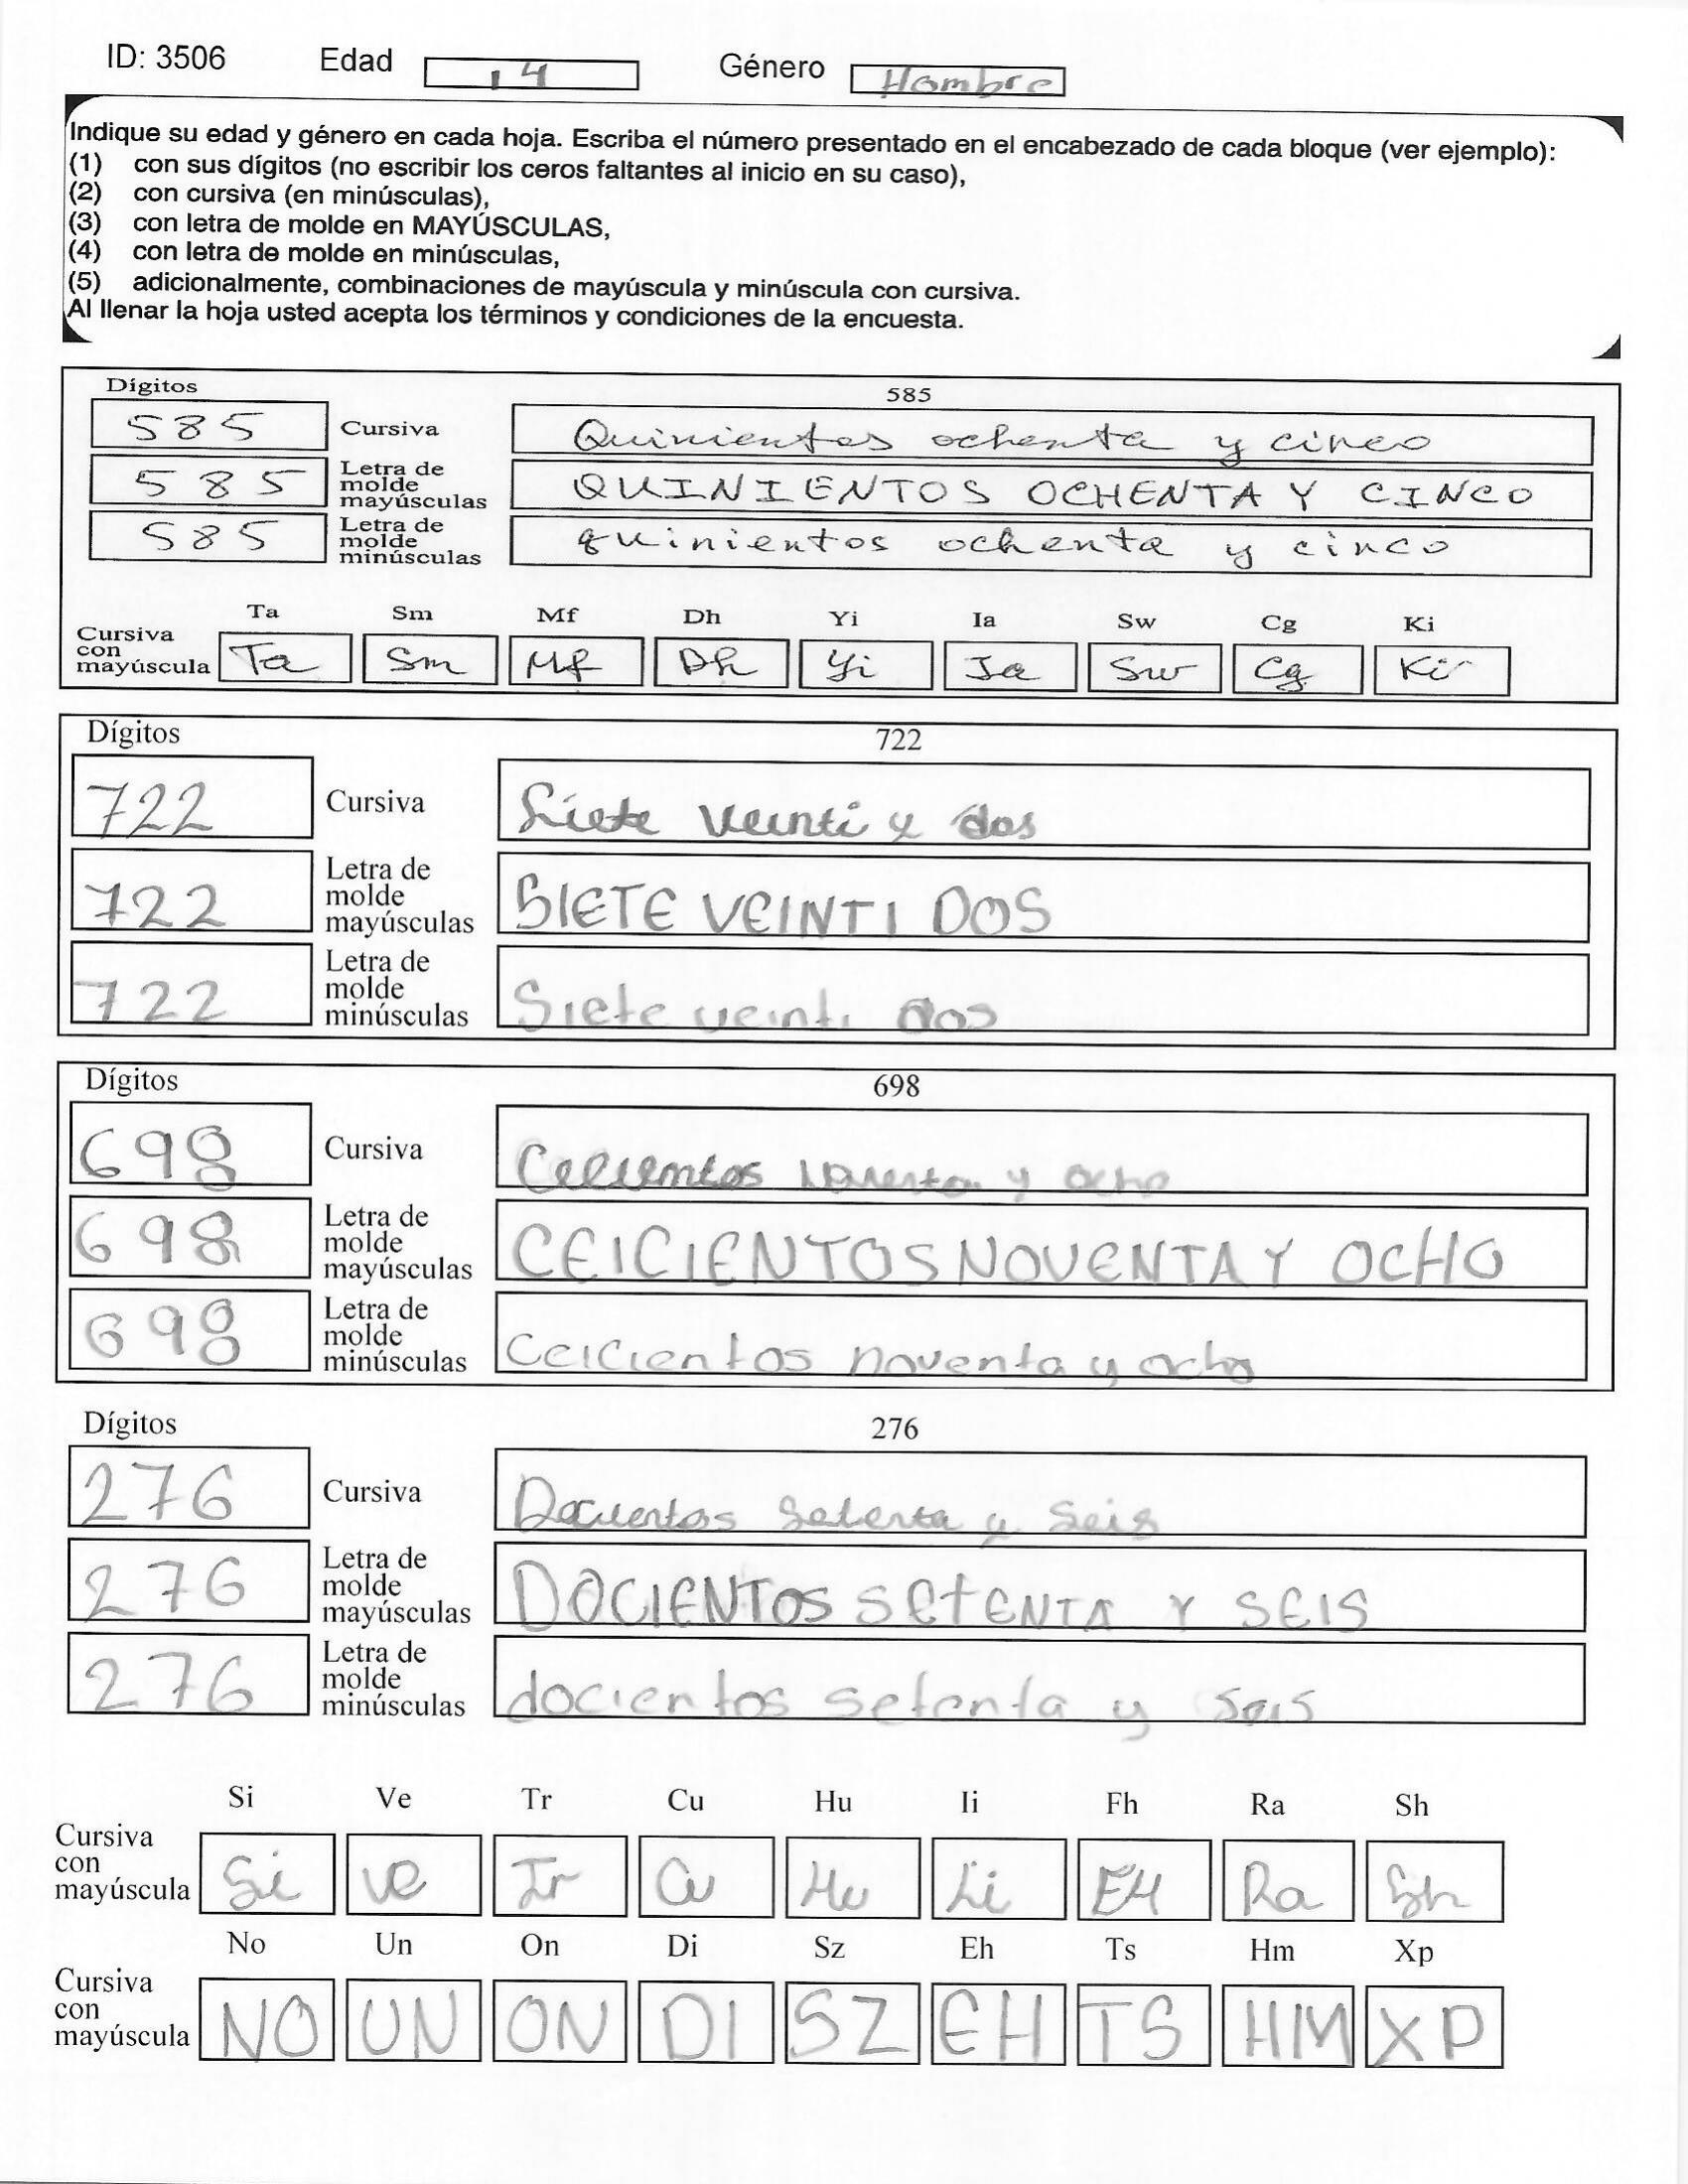 ID: 3506 Edad 14 Género Hombre
Indique su edad y género en cada hoja. Escriba el número presentado en el encabezado de cada bloque (ver ejemplo):
(1) con sus dígitos (no escribir los ceros faltantes al inicio en su caso),
(2) con cursiva (en minúsculas),
(3) con letra de molde en MAYÚSCULAS,
(4) con letra de molde en minúsculas,
(5) adicionalmente, combinaciones de mayúscula y minúscula con cursiva.
Al llenar la hoja usted acepta los términos y condiciones de la encuesta.
Dígitos 585
585 Cursiva Quinientos ochenta y cinco
585 Letra de molde mayúsculas QUINIENTOS OCHENTA Y CINCO
585 Letra de molde minúsculas quinientos ochenta y cinco
Ta Sm Mf Dh Yi Ia Sw Cg Ki
Cursiva con mayúscula Ta Sm Mf Dh Yi Ia Sw Cg Ki
Dígitos 722
722 Cursiva Siete veinti y dos
722 Letra de molde mayúsculas SIETE VEINTI DOS
722 Letra de molde minúsculas Siete veinti dos
Dígitos 698
698 Cursiva y ocho
698 Letra de molde mayúsculas CEICIENTOS NOVENTA Y OCHO
698 Letra de molde minúsculas Ceicientos noventa y ocho
Dígitos 276
276 Cursiva Docientos Setenta y Seis
276 Letra de molde mayúsculas DOCIENTOS SETENTA Y SEIS
276 Letra de molde minúsculas docientos setenta y seis
Si Ve Tr Cu Hu Ii Fh Ra Sh
Cursiva con mayúscula Si Ve Tr Cu Hu Ii FH Ra Sh
No Un On Di Sz Eh Ts Hm Xp
Cursiva con mayúscula NO UN ON DI SZ EH TS HM XP